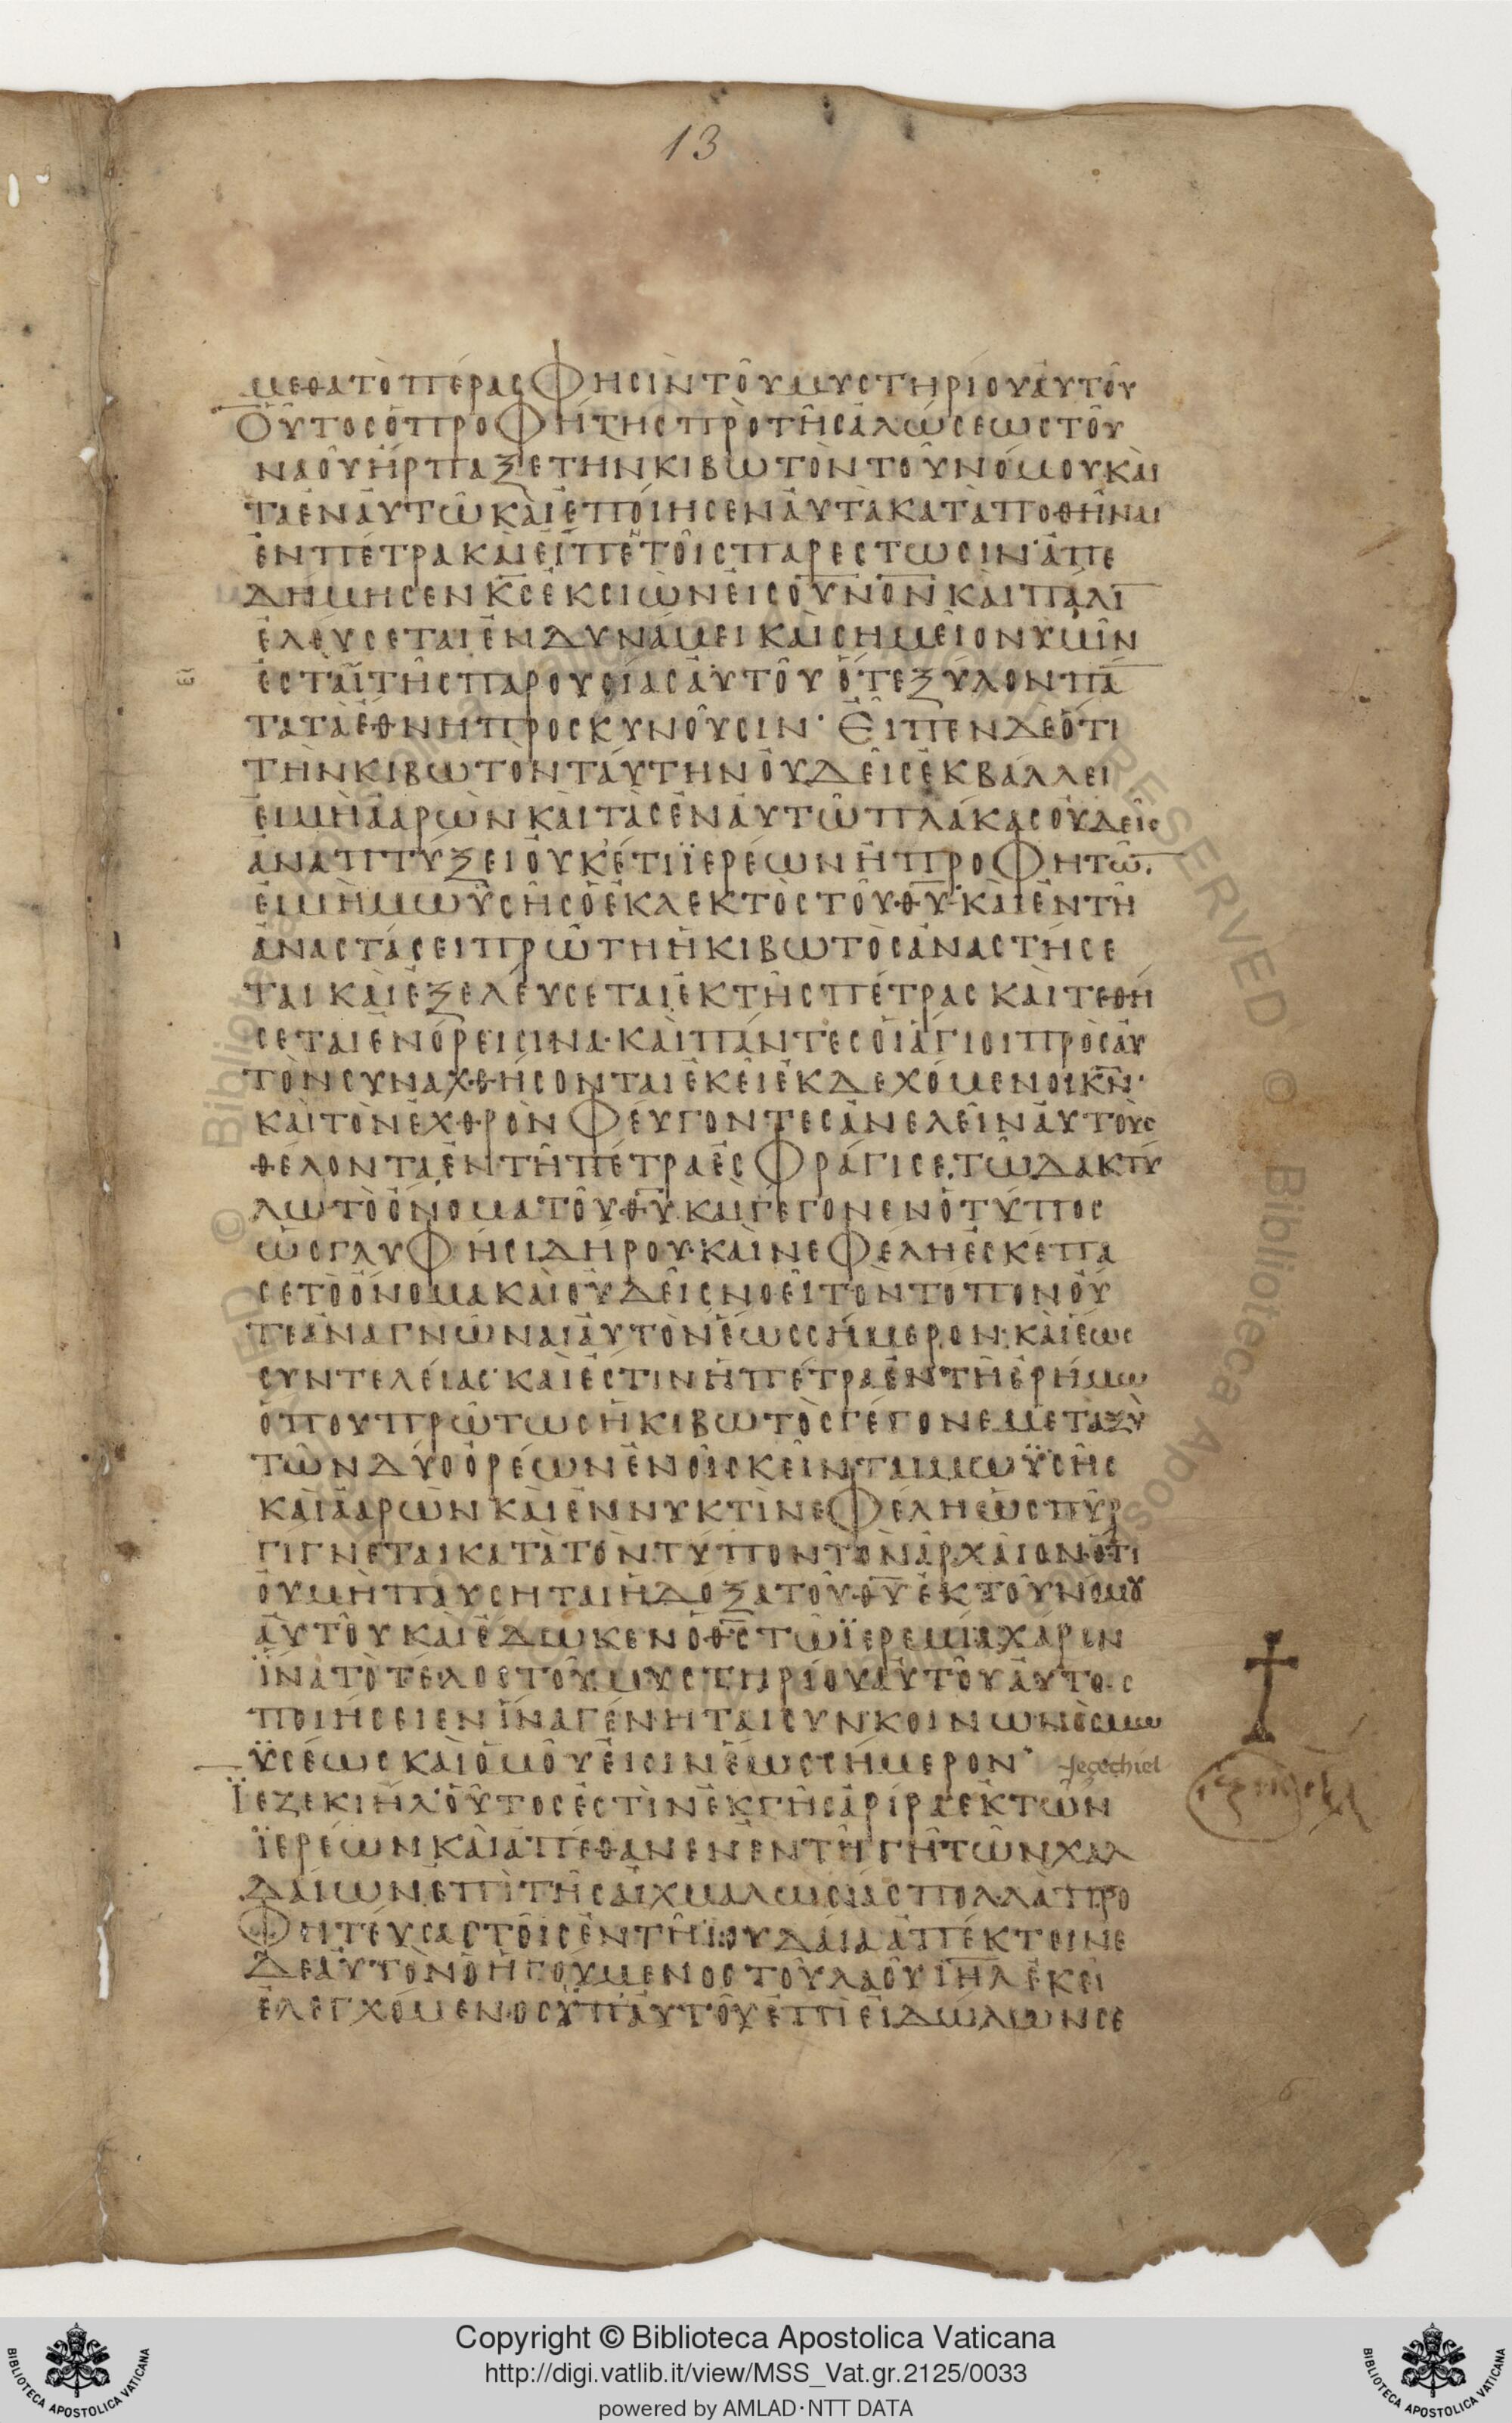 13
μεθατὸπέραςφησὶντοῦμυστηρίουἀυτοῦ
Οὗτοςὁπροφήτηςπρὸτῆςἁλώσεωςτοῦ
ναοῦἥρπαξετηνκιβωτὸντοῦνόμουκὰι
ταἐνἀυτῶκὰιἐποίησενἀυτὰκατὰποθῆναι
ἐνπέτρακὰιεἶπετοῖςπαρεστωσιν·ἀπε
δήμησενκ̅ς̅ἐκσιὼνἐιςο̅υ̅ν̅ο̅ν̅κὰιπάλι̅
ἐλέυσεταιἐνδυνάμεικὰισημεῖονυμῖν
ἐσταῖτῆςπαρουσίαςἀυτοῦὅτεξύλονπά̅
τατὰἔθνηπροσκυνοῦσιν· Ἐῖπενδὲὅτι
τὴνκιβωτὸνταύτηνὀυδεὶςἐκβάλλει
ἐιμὴἀαρὼνκὰιτὰςἐνἀυτῶπλάκαςὀυδεὶς
ἀναπτύξειὀυκέτιϊερέωνἢπροφητῶ̅.
ἐιμὴμωϋσῆςὁἐκλεκτὸςτοῦθ̅υ̅·κὰιἐντῆ
ἀναστάσειπρῶτηἡκιβωτὸςἀναστήσε
ταικὰιἐξελέυσεταιἐκτῆςπέτραςκὰιτεθή
σεταιἐνόρεισινα·κὰιπάντεςὁιἅγιοιπρὸςἀυ
τὸνσυναχθήσονταιἐκεῖἐκδεχόμενοικ̅ν̅·
κὰιτὸνἐχθρὸνφέυγοντεςἀνελεῖνἀυτὸυς
θέλονταἐντῆπέτραἐσφράγισε.τῶδακτύ
λωτὸὄνοματοῦθ̅υ̅κὰιγέγονενὁτύπος
ὡςγλυφήσιδήρου·κὰινεφεληἐσκέπα
σετὸὄνομακὰιὀυδεὶςνοεῖτὸντόπονὀύ
τεἀναγνῶναιἀυτὸνἕωςσήμερον·κὰιἕως
συντελέιας·κὰιἐστινἡπέτραἐντῆἐρήμω
ὅπουπρῶτωςἡκιβωτὸςγέγονεμεταξὺ
τῶνδύοὀρέωνἐνοἷςκεῖνταιμωϋσῆς
κὰιἀαρὼνκὰιἐννυκτὶνεφέληὡςπῦρ
γίγνεταικατὰτὸντύποντὸνἀρχαῖον·ὅτι
ὀυμὴπαυσηταιἡδόξατοῦθ̅υ̅ἐκτοῦνόμου
ἀυτοῦκὰιἔδωκενὁθ̅ς̅τῶϊερεμίαχάριν
ἵνατὸτέλοςτοῦμυστηρίουἀυτοῦἀυτος
ποιήσειενἵναγένηταισυνκοινωνὸςμω
ϋσέωςκὰιὁμοῦἐισινἕωςσήμερον·
Jezechiel
Ϊεζεκιήλ·ὁῦτοςἐστὶνἐκγῆςἀρίραἐκτῶν
ϊερέωνκὰιἀπέθανενἐντῆγῆτῶνχαλ
δάιωνἐπὶτῆςἀιχμαλωσίαςπολλὰπρο
φητέυσαςτοῖςἐντῆϊουδάιαἀπέκτεινε
δεἀυτὸνὁἡγούμενοςτοῦλαοῦι̅η̅λ̅ἐκεῖ
ἐλεγχόμενοςὑπἀυτοῦἐπὶἐιδώλωνσε
Copyright © Biblioteca Apostolica Vaticana
http://digi.vatlib.it/view/MSS_Vat.gr.2125/0033
powered by AMLAD·NTT DATA
BIBLIOTECA APOSTOLICA VATICANA
BIBLIOTECA APOSTOLICA VATICANA